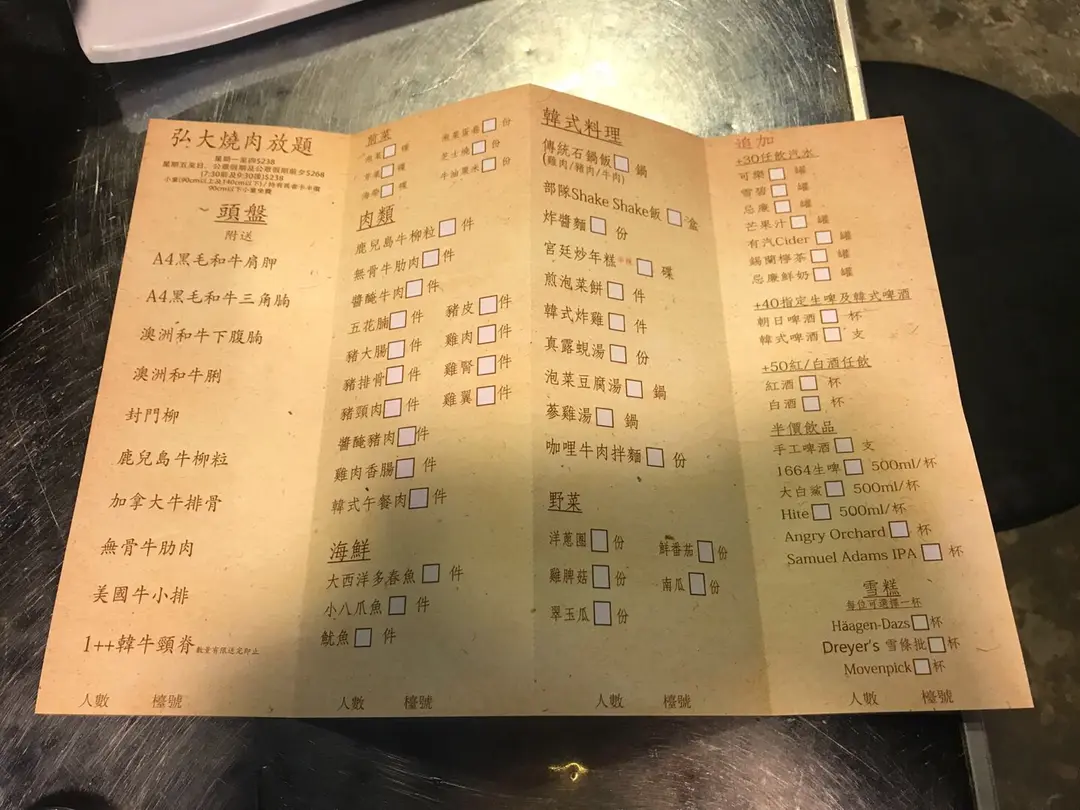 弘大燒肉放題
星期一至四$238
星期五至日、公眾假期及公眾假期前夕$268
(7:30前及9:30後)$238
小童(90cm以上及140cm以下)/
90cm以下小童免費
頭盤
附送
A4黑毛和牛肩胛
A4黑毛和牛三角腩
澳洲和牛下腹腩
澳洲和牛脷
封門柳
鹿兒島牛柳粒
加拿大牛排骨
無骨牛肋肉
美國牛小排
1++韓牛頸脊 數量有限送完即止
人數 檯號
前菜
件 份
芝士燒 份
份
肉類
鹿兒島牛柳粒 件
無骨牛肋肉 件
醬醃牛肉 件
五花腩 件 豬皮 件
豬大腸 件 雞肉 件
豬排骨 件 雞腎 件
豬頸肉 件 雞翼 件
醬醃豬肉 件
雞肉香腸 件
韓式午餐肉 件
海鮮
大西洋多春魚 件
小八爪魚 件
魷魚 件
人數 檯號
韓式料理
傳統石鍋飯 鍋
(雞肉/豬肉/牛肉)
部隊Shake Shake飯 盒
炸醬麵 份
宮廷炒年糕 碟
煎泡菜餅 件
韓式炸雞 件
真露蜆湯 份
泡菜豆腐湯 鍋
蔘雞湯 鍋
咖哩牛肉拌麵 份
野菜
洋蔥圈 份 鮮番茄 份
雞脾菇 份 南瓜 份
翠玉瓜 份
人數 檯號
追加
+30任飲汽水
可樂 罐
雪碧 罐
忌廉 罐
芒果汁 罐
有汽Cider 罐
錫蘭檸茶 罐
忌廉鮮奶 罐
+40指定生啤及韓式啤酒
朝日啤酒 杯
韓式啤酒 支
+50紅/白酒任飲
紅酒 杯
白酒 杯
半價飲品
手工啤酒 支
1664生啤 500ml/杯
大白鯊 500ml/杯
Hite 500ml/杯
Angry Orchard 杯
Samuel Adams IPA 杯
雪糕
每位可選擇一杯
Häagen-Dazs 杯
Dreyer's 雪條批 杯
Movenpick 杯
人數 檯號